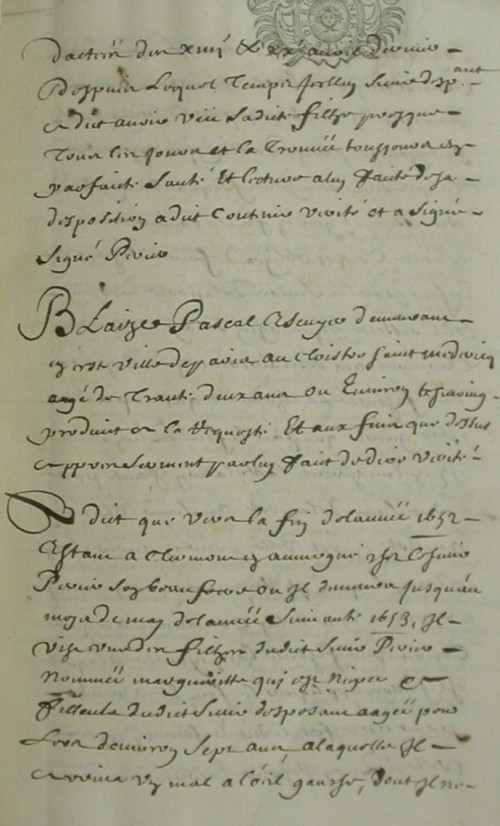 dactée des xiiij & xx avril dernier
Despuis lequel temps icelluy sieur depant
a dict avoir veu sadite fillze presque
Tous les jours et la trouvée tousjours en
parfaite santé Et lecture a luy faite de sa
desposition a dict contenir verité et a signé
Signé Perier
Blaize Pascal Escuyer demeurant
en cest ville de paris au cloistre saint medericq
aagé de trante deux ans ou Environ tesmoing
produict a la Requeste Et aux fins que dessus
appres serment par luy faict de dire verité
A dict que vers la fin de lannée 1652
Estant a clermont en auvergne chez le sieur
Perier son beau frere ou Il demeura jusquau
mois de may de lannée suivante 1653, Il
visit une des filles dudict sieur Perier
nommée margueritte qui est niepce &
filleule dudict sieur desposant aagée pour
Lors denviron sept ans, a laquelle Il
arriva un mal a l'œil gausche, dont Il ne